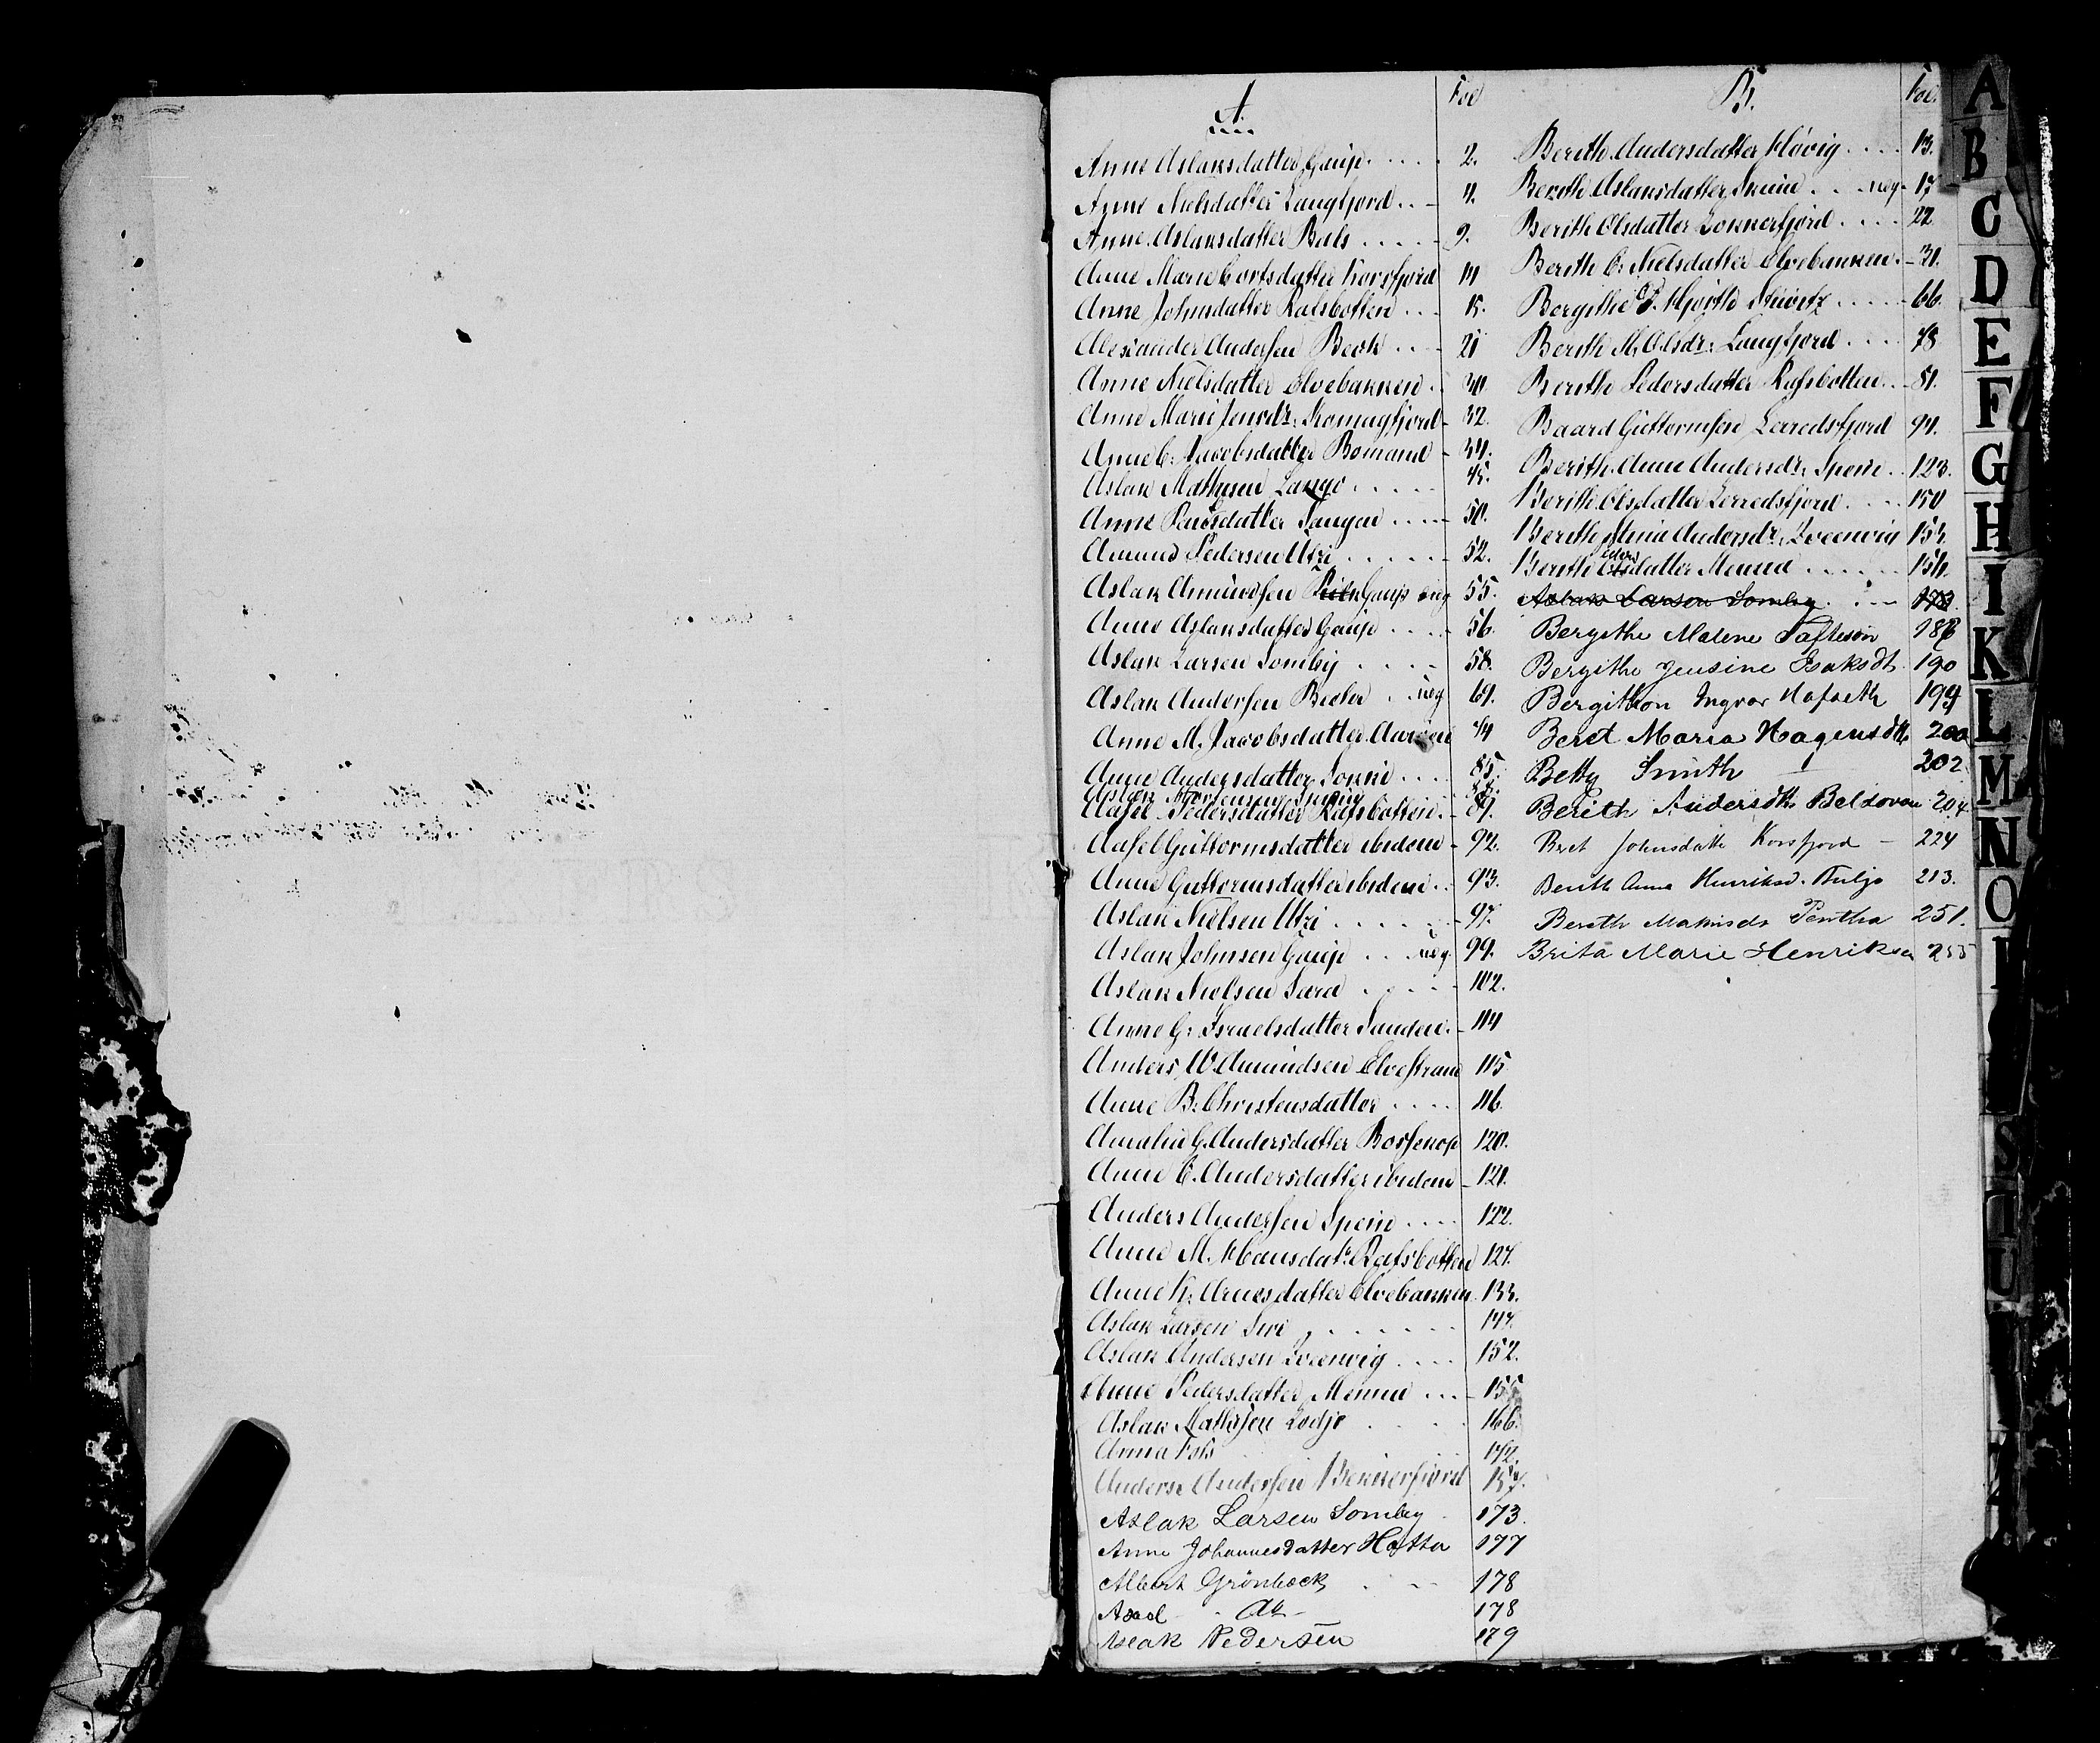 A.
Fol
Anne Aslaksdatter Gaup ..... 2.
Anne Nielsdatter Langfjord .. 4.
Anne Aslaksdatter Bals ..... 9.
Anne Marie Cortsdatter Korsfjord 14
Anne Johnsdatter Rafsbotten ... 15.
Alexander Andersen Beck .... 21
Anne Nielsdatter Elvebakken .. 30
Anne Marie Jensdr: Komagfjord 32.
Anne C: Jacobsdatter Romand 34.
Aslak Mathisen 45.
Anne Tangen ..... 50.
Amund Pedersen Utzi ...... 52.
Aslak Amundsen Gaup 55.
Anne Aslaksdatter Gaup .... 56.
Aslak Larsen Somby .... 58.
Aslak Andersen .. neg 64.
Anne M. Jacobsdatter 74
Anne Andersdatter .... 85.
Aslak Mortensen
Pedersdatter Rafsbotten .. 89.
Guttormsdatter ibidem 92.
Anne Guttormsdatter ibidem .. 93.
Aslak Nielsen Utzi ...... 97.
Aslak Johnsen Gaup ... neg. 99.
Aslak Nielsen Sara ..... 102.
Anne G: Israelsdatter 114
Anders W. Amundsen Elvestrand 115
Anne B: Christensdatter .... 116.
Amalia G. Andersdatter Bossekop 120.
Anne C. Andersdatter ibidem 121.
Anders Andersen Spein .... 122.
Anne M. Hansdatr. Rafsbotten 127.
Anne K: Arnesdatter Elvebakken 133.
Aslak Larsen Siri ....... 147.
Aslak Andersen Kveenvig .... 152.
Anne Pedersdatter Menna .... 155
Aslak Mathisen Lodjo .... 166.
Anna 172.
Anders Andersen
Aslak Larsen Somby 173.
Anne Johannesdatter Hætta 177
Albert Grönbeck 178
Axel - do - 178
Aslak Pedersen 179
B.
Fol.
Berith Andersdatter Kløvig .... 13.
Berith Aslaksdatter ... neg 17
Berith Olsdatter .... 22
Berith C: Nielsdatter Elvebakken 31.
Bergithe J. Hjorth ..... 66.
Berith M. Olsdr: Langfjord .... 78
Berith Pedersdatter Rafsbotten .. 81.
Baard Guttormsen Lerredsfjord 94.
Berith Anne Andersdr: Spein .. 123.
Berith Olsdatter Lerredsfjord .... 150
Berith Stina Andersdr: Kveenvig 153.
Berith datter Menna ...... 154.
Aslak Larsen Somby 173.
Bergithe Malene 186
Bergithe Jensine Isaksdt. 190
Bergithon Ingvar Hofseth 194
Beret Maria Hagensdtr 200
Betty Smith 202
Berith Andersdtr 204
Beret Johnsdatt Korsfjord - 224
Berith Anna Henriksd. 213.
Bereth 251.
Brita Marie Henriksen 255
A
B
C
D
E
F
G
H
I
K
L
M
N
O
S
T
U